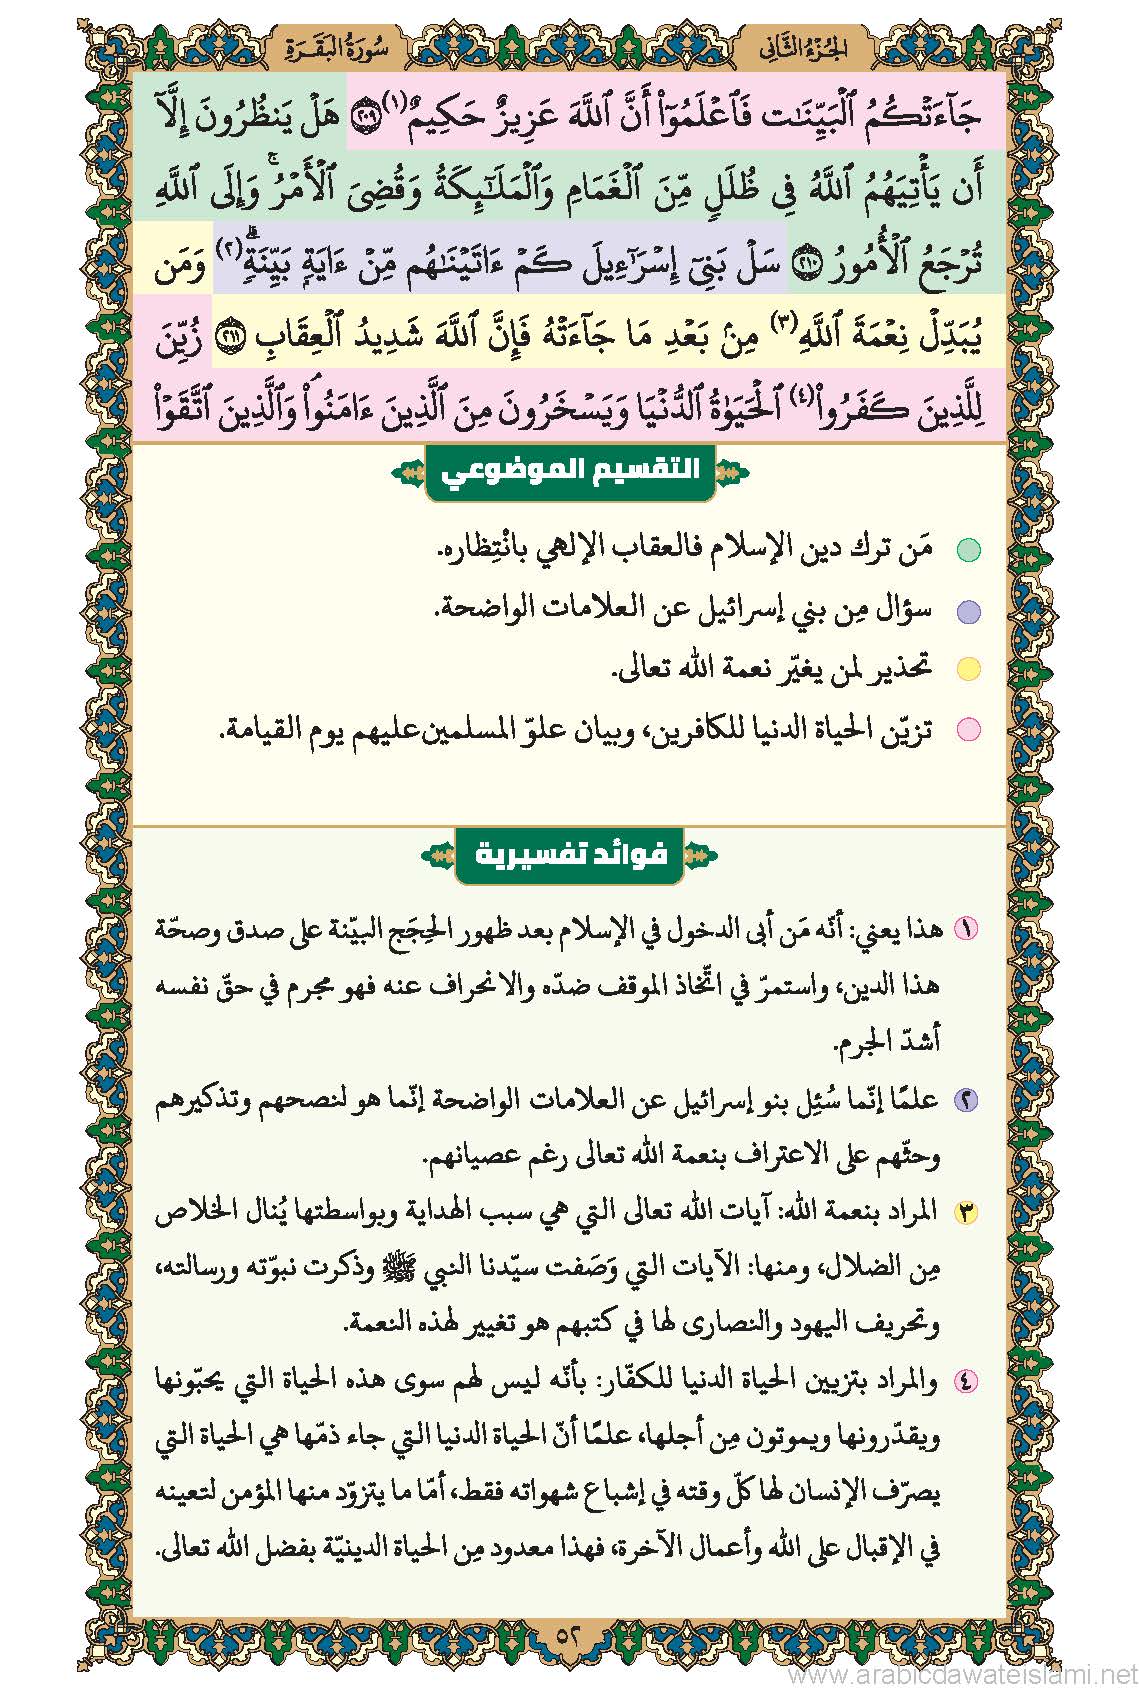 الجُزْءُ الثَّانِي
سُورَةُ البَقَرَةِ
جَآءَتْكُمُ ٱلْبَيِّنَـٰتُ فَٱعْلَمُوٓا۟ أَنَّ ٱللَّهَ عَزِيزٌ حَكِيمٌ(١) ٢٠٩ هَلْ يَنظُرُونَ إِلَّآ
أَن يَأْتِيَهُمُ ٱللَّهُ فِى ظُلَلٍ مِّنَ ٱلْغَمَامِ وَٱلْمَلَـٰٓئِكَةُ وَقُضِىَ ٱلْأَمْرُ ۚ وَإِلَى ٱللَّهِ
تُرْجَعُ ٱلْأُمُورُ ٢١٠ سَلْ بَنِىٓ إِسْرَٰٓءِيلَ كَمْ ءَاتَيْنَـٰهُم مِّنْ ءَايَةٍۭ بَيِّنَةٍ ۗ(٢) وَمَن
يُبَدِّلْ نِعْمَةَ ٱللَّهِ(٣) مِنۢ بَعْدِ مَا جَآءَتْهُ فَإِنَّ ٱللَّهَ شَدِيدُ ٱلْعِقَابِ ٢١١ زُيِّنَ
لِلَّذِينَ كَفَرُوا۟(٤) ٱلْحَيَوٰةُ ٱلدُّنْيَا وَيَسْخَرُونَ مِنَ ٱلَّذِينَ ءَامَنُوا۟ ۘ وَٱلَّذِينَ ٱتَّقَوْا۟
التقسيم الموضوعي
مَن ترك دين الإسلام فالعقاب الإلهي بانْتِظاره.
سؤال مِن بني إسرائيل عن العلامات الواضحة.
تحذير لمن يغيّر نعمة الله تعالى.
تزيّن الحياة الدنيا للكافرين، وبيان علوّ المسلمين عليهم يوم القيامة.
فوائد تفسيرية
١ هذا يعني: أنّه مَن أبى الدخول في الإسلام بعد ظهور الحِجَج البيّنة على صدق وصحّة
هذا الدين، واستمرّ في اتّخاذ الموقف ضدّه والانحراف عنه فهو مجرم في حقّ نفسه
أشدّ الجرم.
٢ علمًا إنّما سُئِل بنو إسرائيل عن العلامات الواضحة إنّما هو لنصحهم وتذكيرهم
وحثّهم على الاعتراف بنعمة الله تعالى رغم عصيانهم.
٣ المراد بنعمة الله: آيات الله تعالى التي هي سبب الهداية وبواسطتها يُنال الخلاص
مِن الضلال، ومنها: الآيات التي وَصَفت سيّدنا النبي ﷺ وذكرت نبوّته ورسالته،
وتحريف اليهود والنصارى لها في كتبهم هو تغيير لهذه النعمة.
٤ والمراد بتزيين الحياة الدنيا للكفّار: بأنّه ليس لهم سوى هذه الحياة التي يحبّونها
ويقدّرونها ويموتون مِن أجلها، علمًا أنّ الحياة الدنيا التي جاء ذمّها هي الحياة التي
يصرّف الإنسان لها كلّ وقته في إشباع شهواته فقط، أمّا ما يتزوّد منها المؤمن لتعينه
في الإقبال على الله وأعمال الآخرة، فهذا معدود مِن الحياة الدينيّة بفضل الله تعالى.
٥٢
www.arabicdawateislami.net